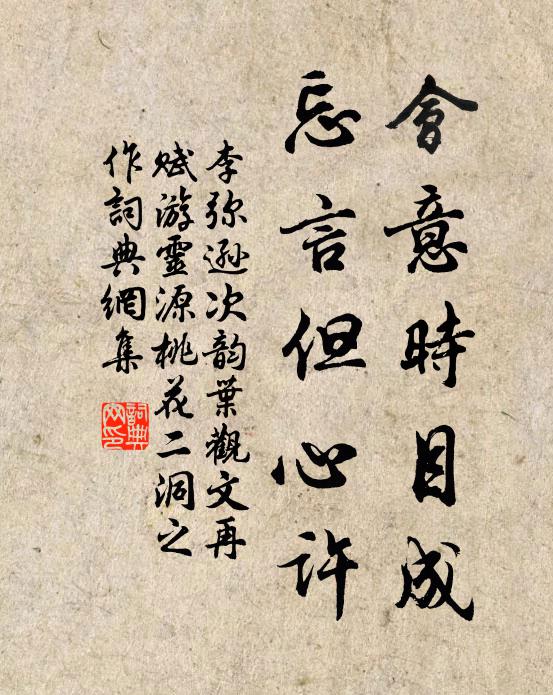 會意時目成
忘言但心許
李弥遜次韵葉觀文再
赋游靈源桃花二洞之
作詞典網集
詞典网印